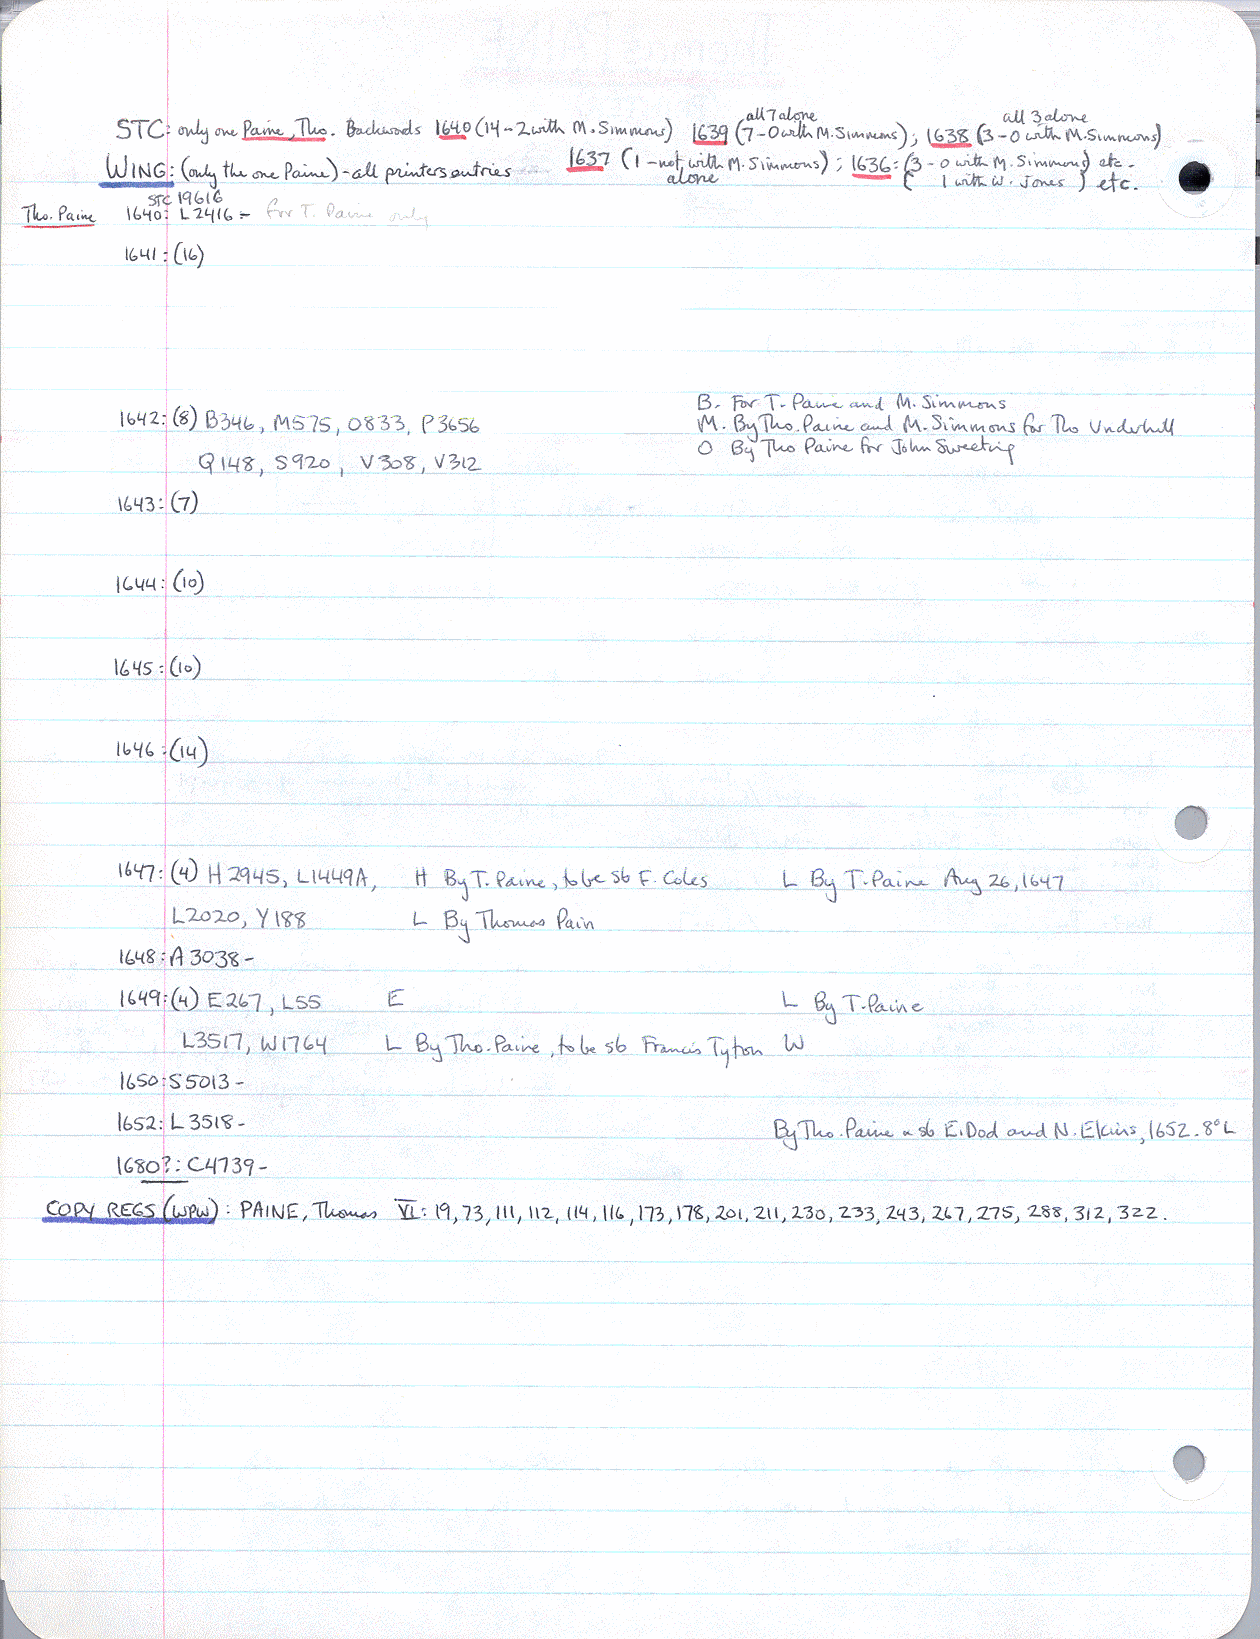 all 7 alone all 3 alone
STC: only one Paine, Tho. Backwards 1640 (14-2 with M. Simmons) 1639 (7-0 with M. Simmons); 1638 (3-0 with M. Simmons)
WING: (only the one Paine) - all printers entries 1637 (1-not with M. Simmons); 1636: (3-0 with M. Simmons) etc.
alone 1 with W. Jones) etc.
STC 19616
Tho. Paine 1640: L2416 - for T. Paine only
1641: (16)
B. For T. Paine and M. Simmons
1642: (8) B346, M575, O833, P3656 M. By Tho. Paine and M. Simmons for Tho Underhill
O By Tho Paine for John Sweeting
Q148, S920, V308, V312
1643: (7)
1644: (10)
1645: (10)
1646: (14)
1647: (4) H2945, L1449A, H By T. Paine, to be sb F. Coles L By T. Paine Aug 26, 1647
L2020, Y188 L By Thomas Pain
1648: A3038 -
1649: (4) E267, L55 E L By T. Paine
L3517, W1764 L By Tho. Paine, to be sb Francis Tyton W
1650: S5013 -
1652: L3518 - By Tho. Paine sb E. Dod and N. Ekins, 1652. 8° L
1680?: C4739 -
COPY REGS (WPW): PAINE, Thomas VI: 19, 73, 111, 112, 114, 116, 173, 178, 201, 211, 230, 233, 243, 267, 275, 288, 312, 322.